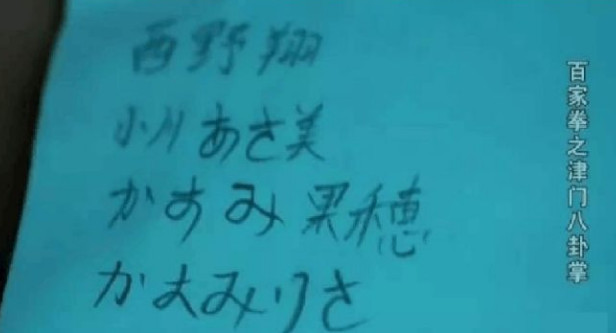 西野翔
小川あさ美
かすみ果穂
かすみりさ
百家拳之津门八卦掌